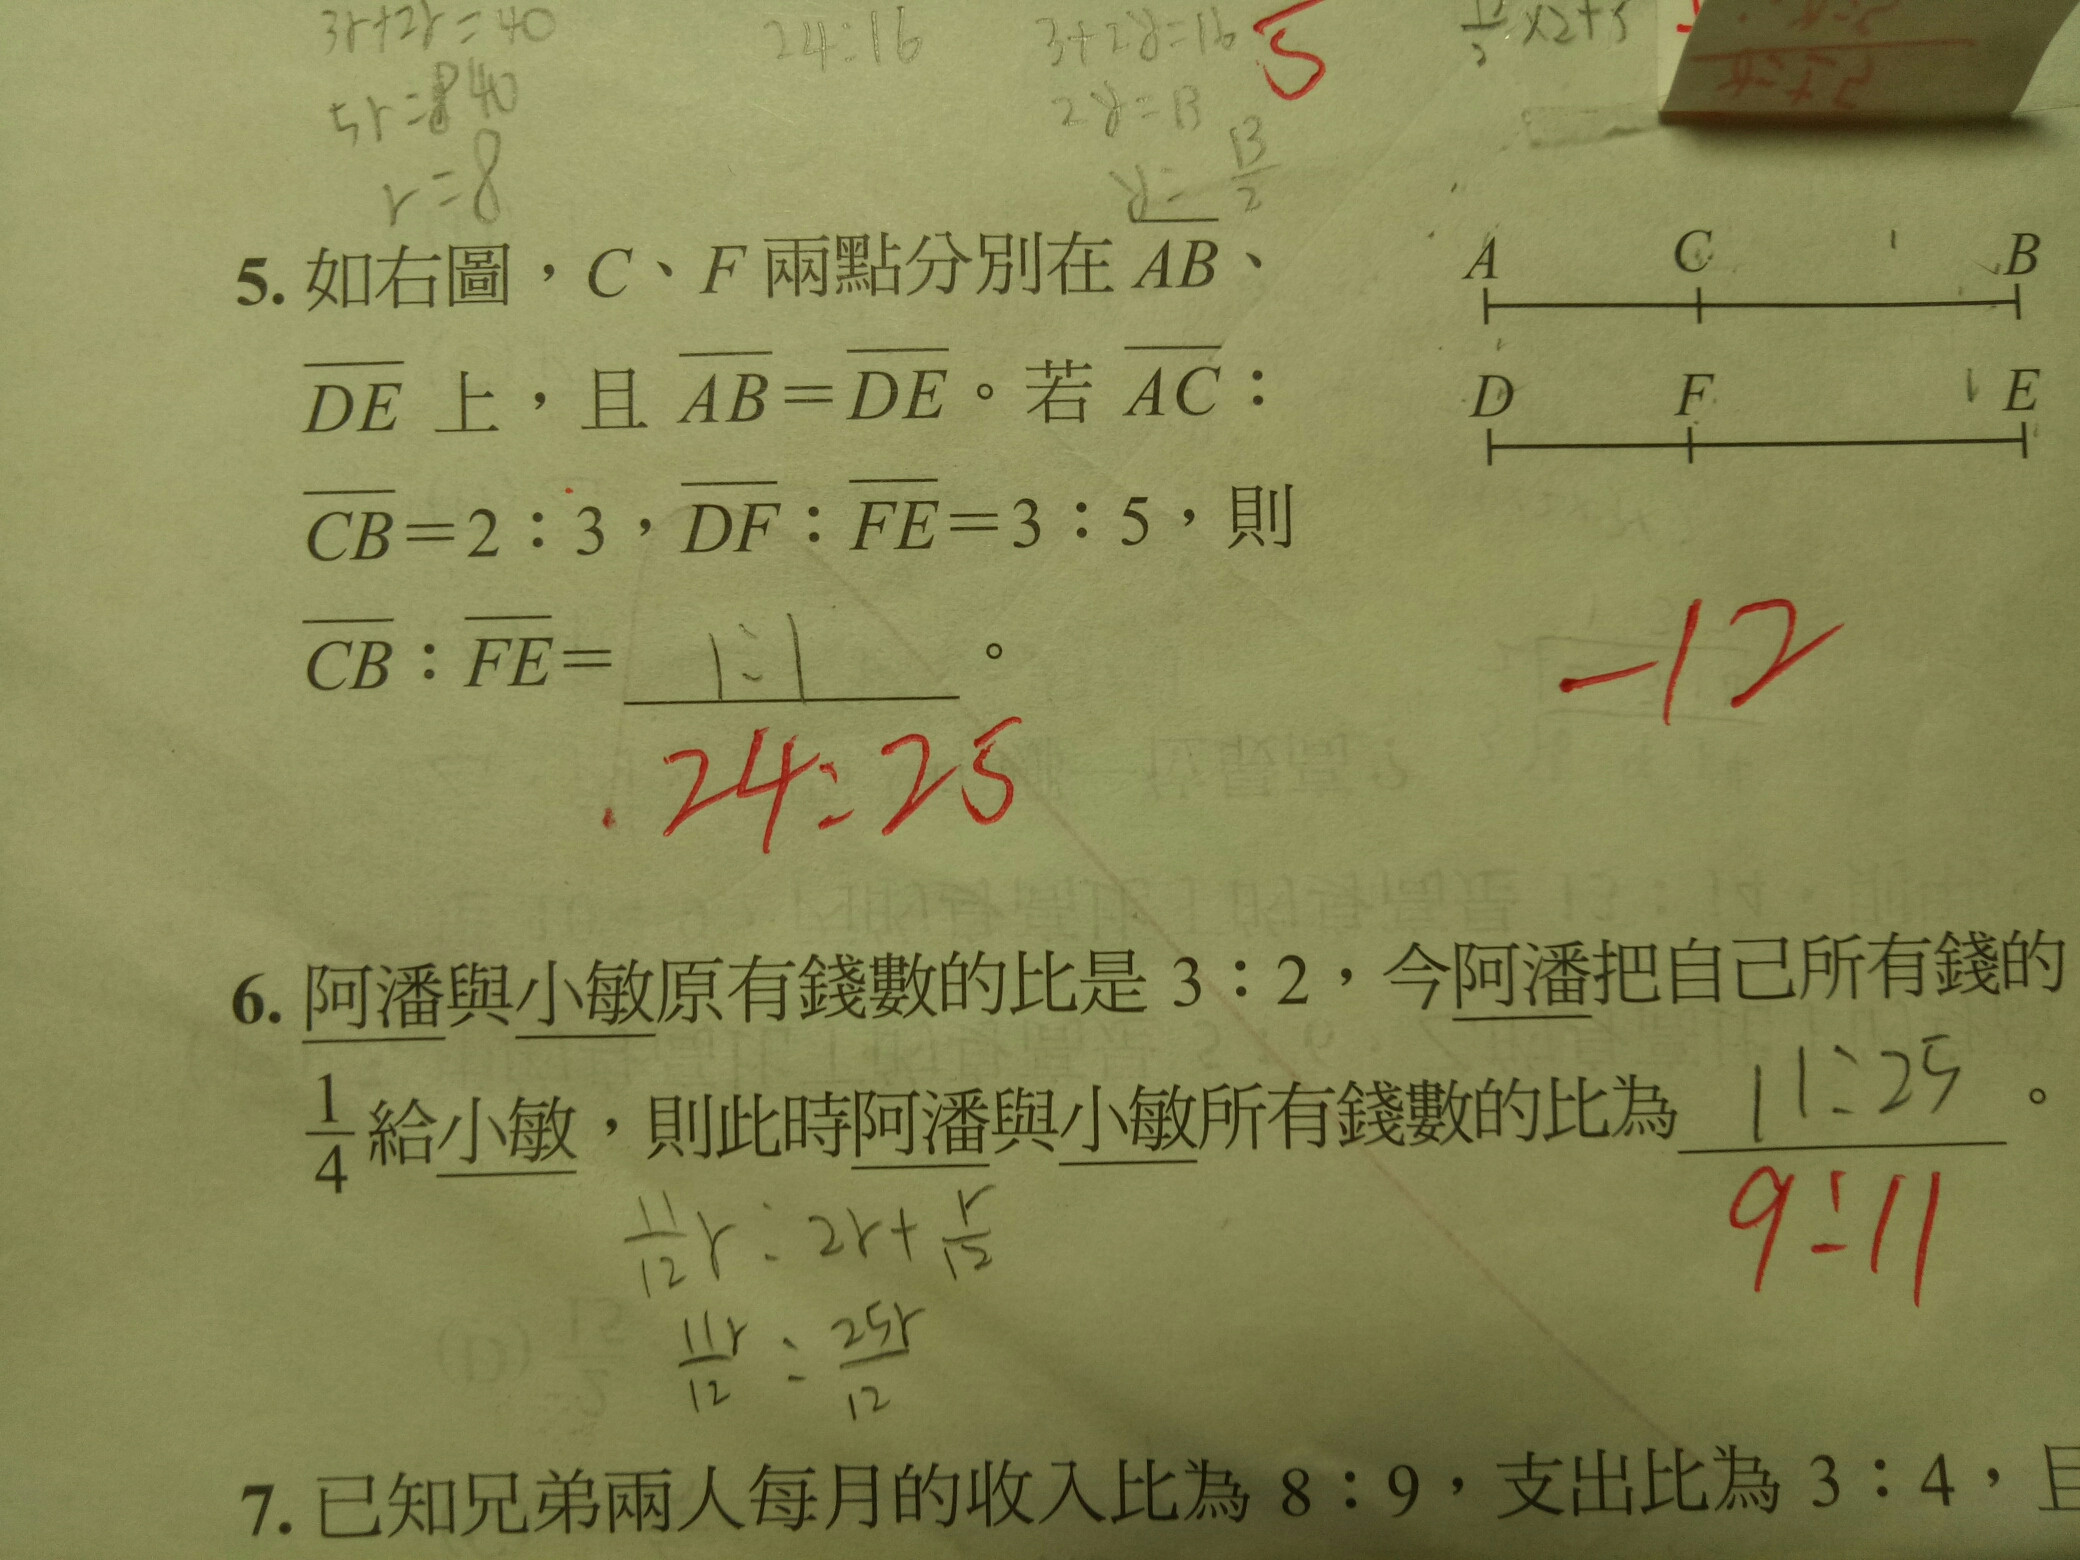 3r+2r=40
24:16
3+2y=16
5
5r=40
2y=13
r=8
y=13/2
5. 如右圖，C、F 兩點分別在 AB、
DE 上，且 AB=DE。若 AC：
CB=2：3，DF：FE=3：5，則
CB：FE= 1:1 。
A C B
D F E
24:25
-12
6. 阿潘與小敏原有錢數的比是 3：2，今阿潘把自己所有錢的
1/4 給小敏，則此時阿潘與小敏所有錢數的比為 11:25 。
9:11
11/12 r : 2r + r/12
11r/12 : 25r/12
7. 已知兄弟兩人每月的收入比為 8：9，支出比為 3：4，且